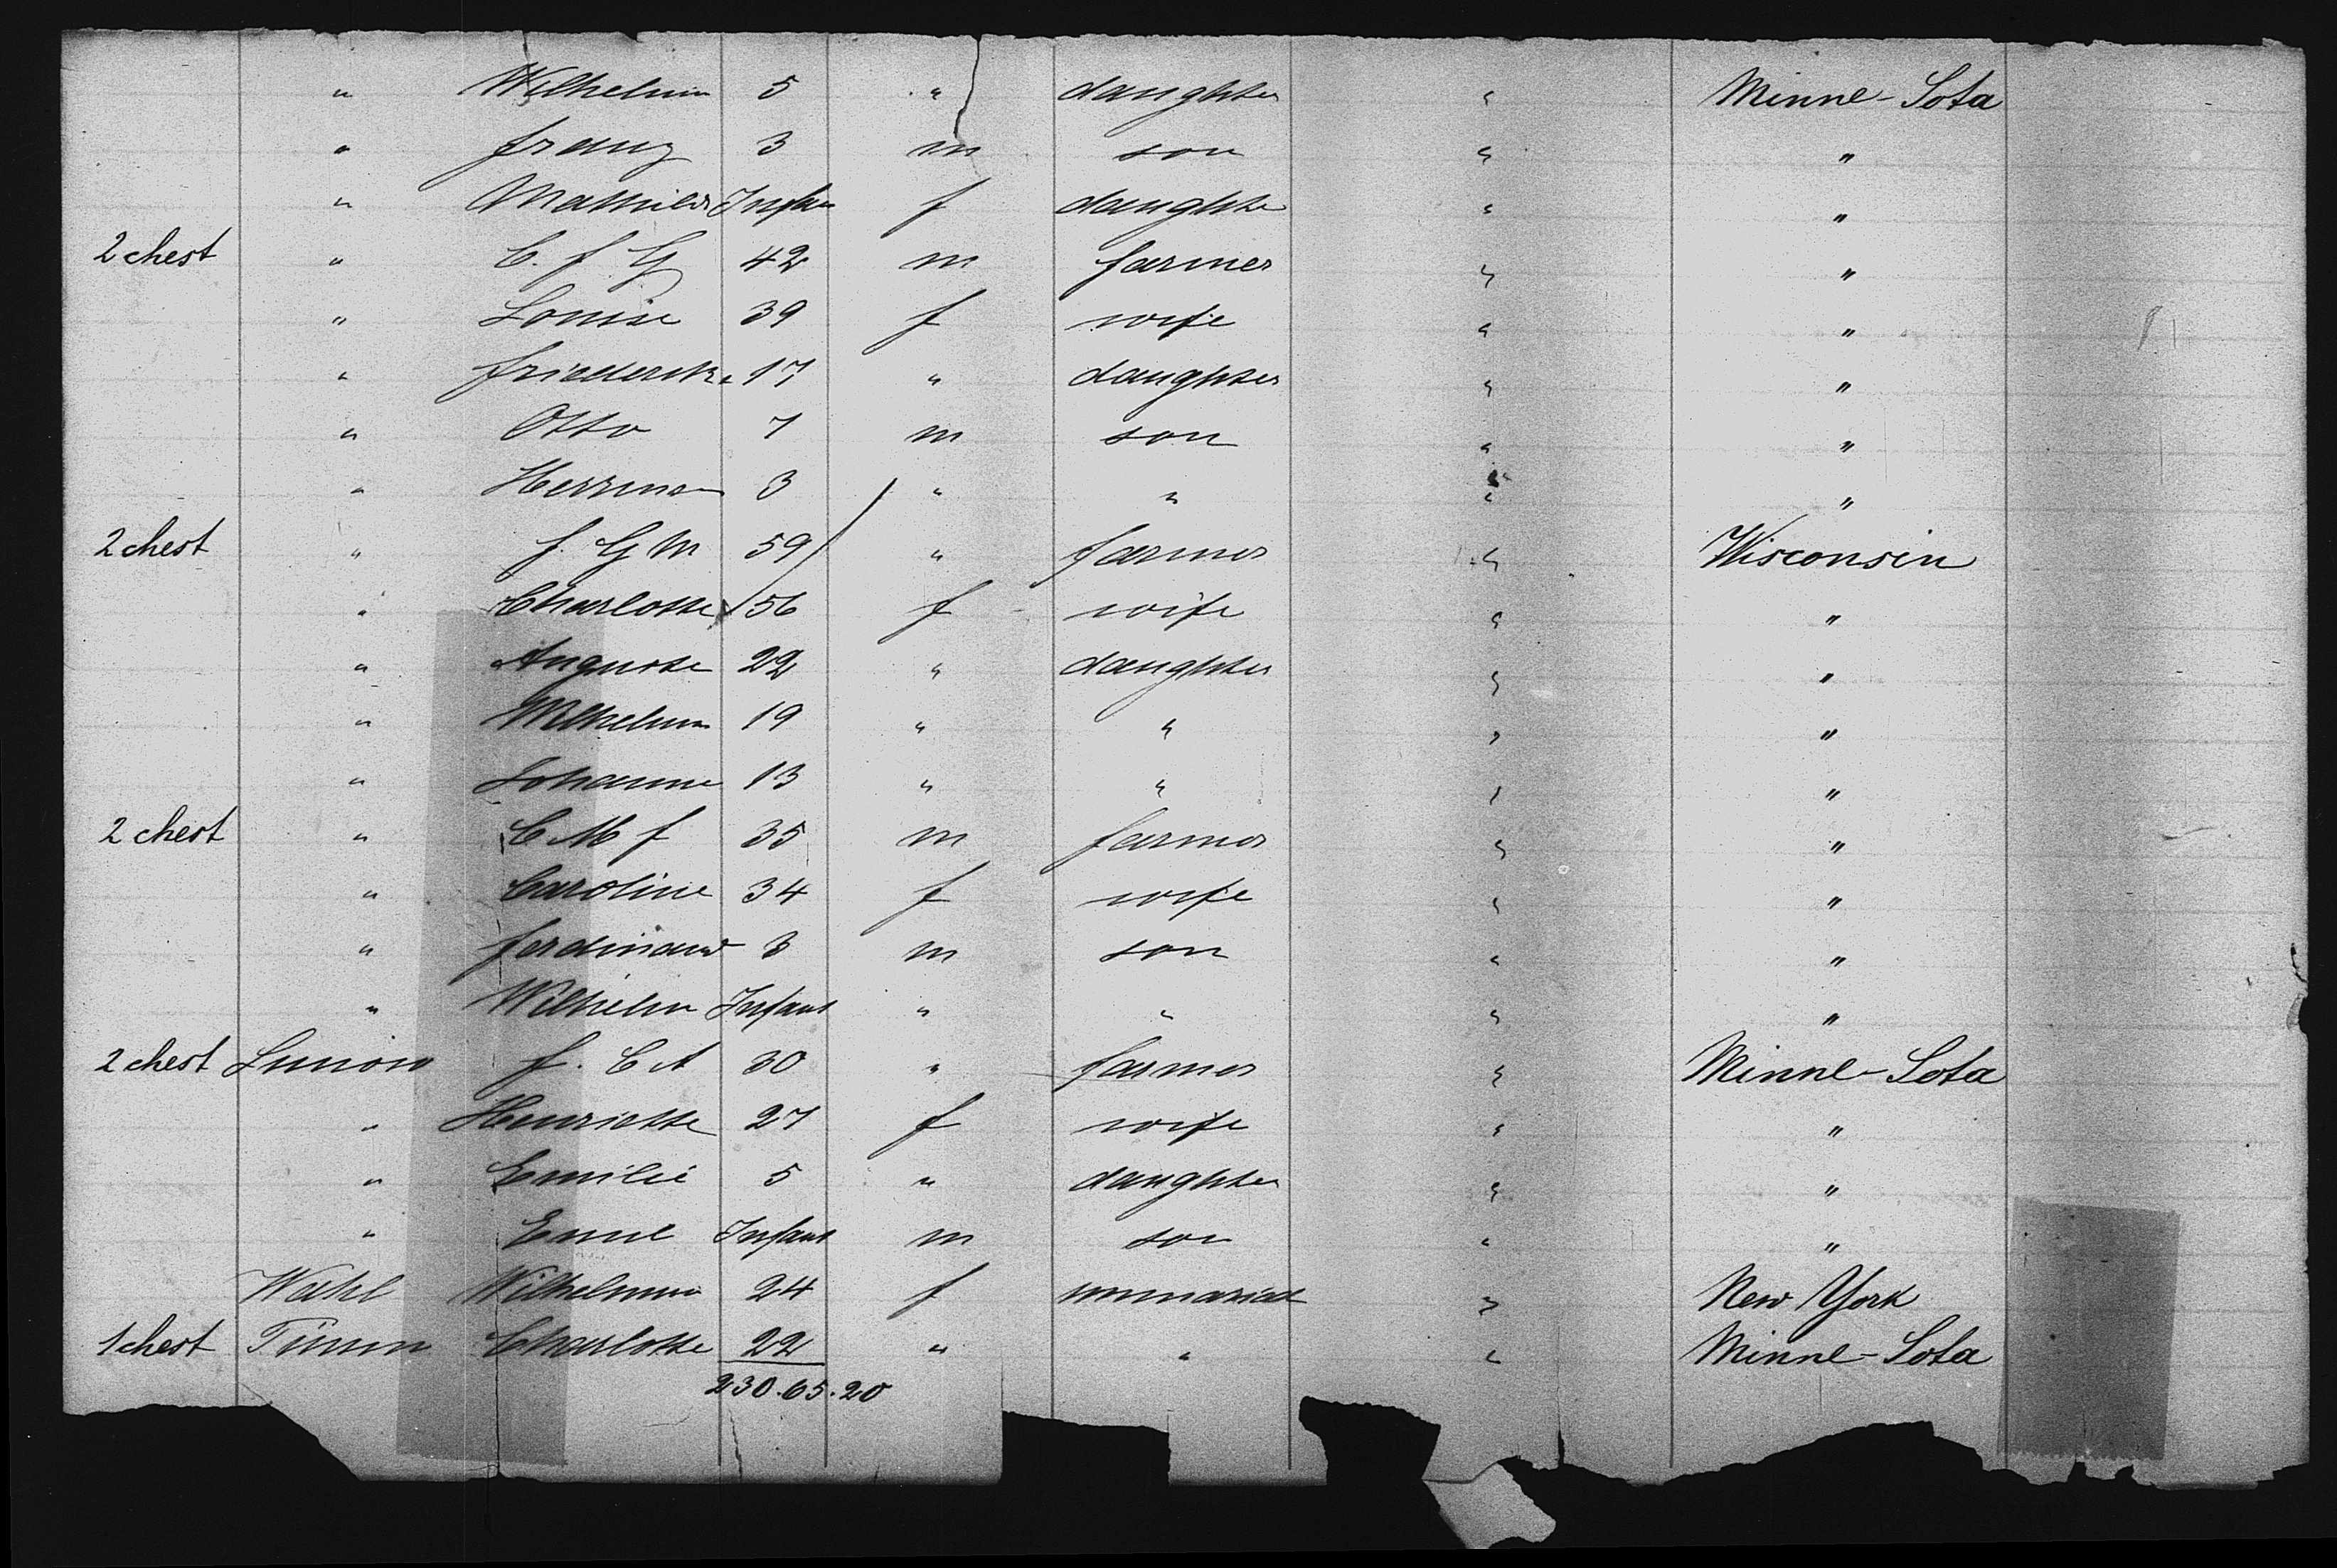 " Wilhelmin 5 " daughter " Minne-Sota
" Franz 3 m son " "
" Mathilde Infan f daughte " "
2 chest " C. F. G 42 m farmer " "
" Louise 39 f wife " "
" Friederike 17 " daughter " "
" Otto 7 m son " "
" Herrman 3 " " " "
2 chest " F. G M 59 " farmer " Wisconsin
" Charlotte 56 f wife " "
" Auguste 22 " daughter " "
" Wilhelmin 19 " " " "
" Johanne 13 " " " "
2 chest " C M F 35 m farmer " "
" Caroline 34 f wife " "
" Ferdinand 3 m son " "
" Wilhelm Infant " " " "
2 chest F. C A 30 " farmer " Minne-Sota
" Henriette 27 f wife " "
" Emilie 5 " daughter " "
" Emil Infant m son " "
Wahl Wilhelmine 24 f " New York
1 chest Timm Charlotte 22 " " " Minne-Sota
230.65.20